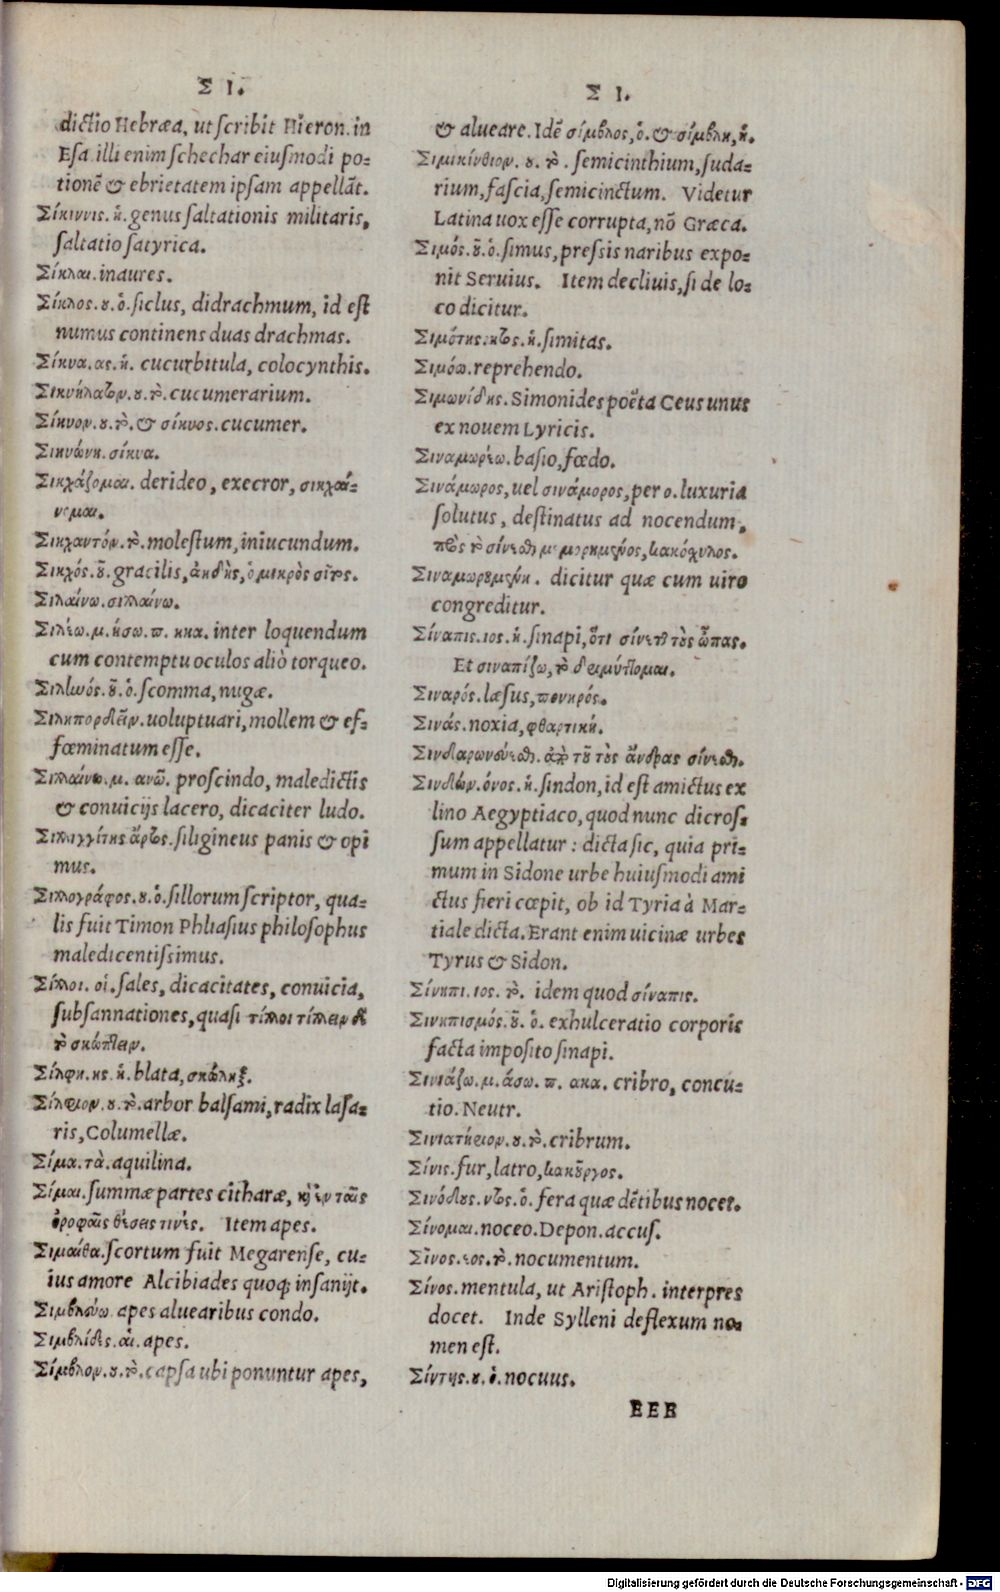 Σ Ι.
dictio Hebræa, ut scribit Hieron. in
Esa. illi enim schechar eiusmodi po=
tionē & ebrietatem ipsam appellāt.
Σίκιννις. ἡ. genus saltationis militaris,
saltatio satyrica.
Σίκλαι. inaures.
Σίκλος. ου. ὁ. siclus, didrachmum, id est
numus continens duas drachmas.
Σίκυα. ας. ἡ. cucurbitula, colocynthis.
Σικυήλατον. ου. τὸ. cucumerarium.
Σίκυον. ου. τὸ. & σίκυος. cucumer.
Σικυώνη. σίκυα.
Σικχάζομαι. derideo, execror, σικχαί=
νομαι.
Σικχαντόν. τὸ. molestum, iniucundum.
Σικχός. οῦ. gracilis, ἀηδὴς, ὁ μικρὸς σῖτος.
Σιλαίνω. σιλλαίνω.
Σιλέω. μ. ήσω. π. ηκα. inter loquendum
cum contemptu oculos aliò torqueo.
οῦ. ὁ. scomma, nugæ.
Σιληπορδεῖν. uoluptuari, mollem & ef=
fœminatum esse.
Σιλλαίνω. μ. ανῶ. proscindo, maledictis
& conuicijs lacero, dicaciter ludo.
Σιλιγγίτης ἄρτος. siligineus panis & opi
mus.
Σιλλογράφος. ου. ὁ. sillorum scriptor, qua=
lis fuit Timon Phliasius philosophus
maledicentissimus.
Σίλλοι. οἱ. sales, dicacitates, conuicia,
subsannationes, quasi τίλλοι τίλλειν δὲ
τὸ σκώπτειν.
Σίλφη. ης. ἡ. blata, σκώληξ.
Σίλφιον. ου. τὸ. arbor balsami, radix lasa=
ris, Columellæ.
Σίμα. τὰ. aquilina.
Σίμαι. summæ partes citharæ, καὶ ἐν ταῖς
ὀροφαῖς θέσεις τινές. Item apes.
Σιμαίθα. scortum fuit Megarense, cu=
ius amore Alcibiades quoq; insanijt.
Σιμβλεύω. apes aluearibus condo.
Σιμβλίδες. αἱ. apes.
Σίμβλον. ου. τὸ. capsa ubi ponuntur apes,
Σ Ι.
& alueare. Idē σίμβλος, ὁ. & σίμβλη, ἡ.
Σιμικίνθιον. ου. τὸ. semicinthium, suda=
rium, fascia, semicinctum. Videtur
Latina uox esse corrupta, nō Græca.
Σιμός. οῦ. ὁ. simus, pressis naribus expo=
nit Seruius. Item decliuis, si de lo=
co dicitur.
Σιμότης. ητος. ἡ. simitas.
Σιμόω. reprehendo.
Σιμωνίδης. Simonides poëta Ceus unus
ex nouem Lyricis.
Σιναμωρέω. basio, fœdo.
Σινάμωρος, uel σινάμορος, per ο. luxuria
solutus, destinatus ad nocendum,
πρὸς τὸ σίνεσθαι μεμορημένος, κακόχυλος.
Σιναμωρουμένη. dicitur quæ cum uiro
congreditur.
Σίναπις. ιος. ἡ. sinapi, ὅτι σίνεται τοὺς ὦπας.
Et σιναπίζω, τὸ δριμύττομαι.
Σιναρός. læsus, πονηρός.
Σινάς. noxia, φθαρτική.
ἀπὸ τοῦ τοὺς ἄνδρας σίνεσθαι.
Σινδών. όνος. ἡ. sindon, id est amictus ex
lino Aegyptiaco, quod nunc dicros=
sum appellatur : dicta sic, quia pri=
mum in Sidone urbe huiusmodi ami
ctus fieri cœpit, ob id Tyria à Mar=
tiale dicta. Erant enim uicinæ urbes
Tyrus & Sidon.
Σίνηπι. ιος. τὸ. idem quod σίναπις.
Σινηπισμός. οῦ. ὁ. exhulceratio corporis
facta imposito sinapi.
Σινιάζω. μ. άσω. π. ακα. cribro, concu=
tio. Neutr.
Σινιατήριον. ου. τὸ. cribrum.
Σίνις. fur, latro, κακοῦργος.
Σινόδους. ντος. ὁ. fera quæ dētibus nocet.
Σίνομαι. noceo. Depon. accus.
Σῖνος. εος. τὸ. nocumentum.
Σίνος. mentula, ut Aristoph. interpres
docet. Inde Sylleni deflexum no=
men est.
Σίντης. ου. ὁ. nocuus.
EEE
Digitalisierung gefördert durch die Deutsche Forschungsgemeinschaft - DFG